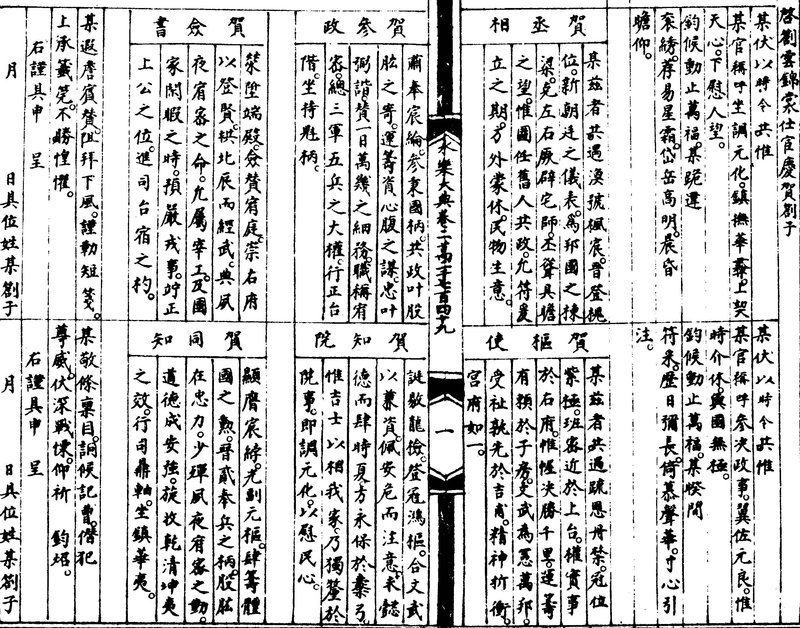 啓劄雲錦裳仕宦慶賀劄子
某伏以時令共惟
某官稱呼坐調元化鎮撫華彝上契
天心下慰人望
鈞候動止萬福某跪違
袞綉荐易星霜岱岳高明晨昏
瞻仰
賀丞相
某茲者共遇渙號楓宸晉登槐
位新朝廷之儀表為邦國之棟
梁克左右厥辟宅師丕聳具瞻
之望惟圖任舊人共政允符爰
立之期方外蒙休民物生意
某伏以時令共惟
某官稱呼參決政事翼佐元良惟
時介休與國無極
鈞候動止萬福某睽間
符采歷日彌長倚慕聲華寸心引
注
賀樞使
某茲者共遇疏恩丹禁冠位
紫極班密近於上台權實事
於右府惟帷決勝千里運籌
有賴於子房文武為憲萬邦
受祉孰光於吉甫精神折衝
宮府如一
永樂大典卷二萬二千七百四十九
一
賀參政
肅奉宸綸參秉國柄共政叶股
肱之寄運籌資心腹之謀忠叶
弼諧贊一日萬幾之細務職稱宥
密總三軍五兵之大權行正台
階坐持魁柄
賀僉書
榮陞端殿僉贊宥庭崇右府
以登賢拱北辰而經武典夙
夜宥密之命允屬宰工及國
家閑暇之時預嚴戎事竚正
上公之位進司台宿之杓
某遐詹賓贊阻拜下風謹勒短箋
上承籤筦不勝惶懼
右謹具申 呈
月 日具位姓某劄子
賀知院
誕敷龍檢登冠鴻樞合文武
以兼資佩安危而注意求懿
德而肆時夏方永保於櫜弓
惟吉士以相我家乃獨釐於
院事即調元化以慰民心
賀同知
顯膺宸綍光副元樞肆籌體
國之勲晉貳奉兵之柄股肱
在忠力少殫夙夜宥密之勤
道德成安強旋收乾清坤夷
之效行司鼎軸坐鎮華夷
某敬修稟目詗候記曹僭犯
尊威伏深戰慄仰祈 鈞炤
右謹具申 呈
月 日具位姓某劄子